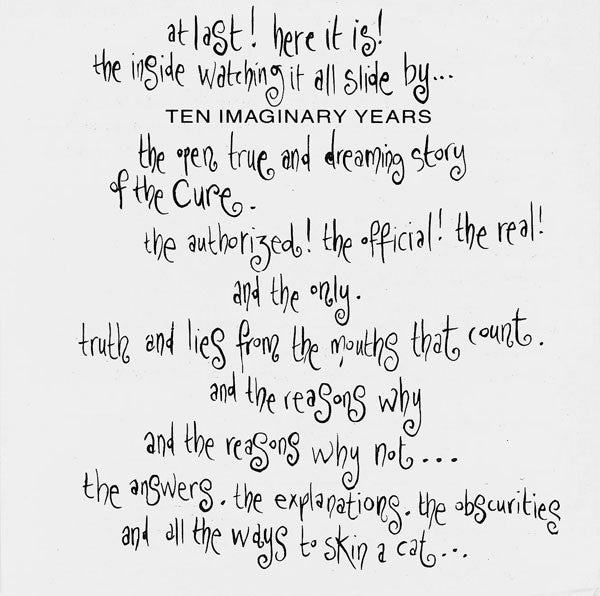 at last! here it is!
the inside watching it all slide by...
TEN IMAGINARY YEARS
the open true and dreaming story
of the Cure.
the authorized! the official! the real!
and the only.
truth and lies from the mouths that count.
and the reasons why
and the reasons why not...
the answers. the explanations. the obscurities
and all the ways to skin a cat...